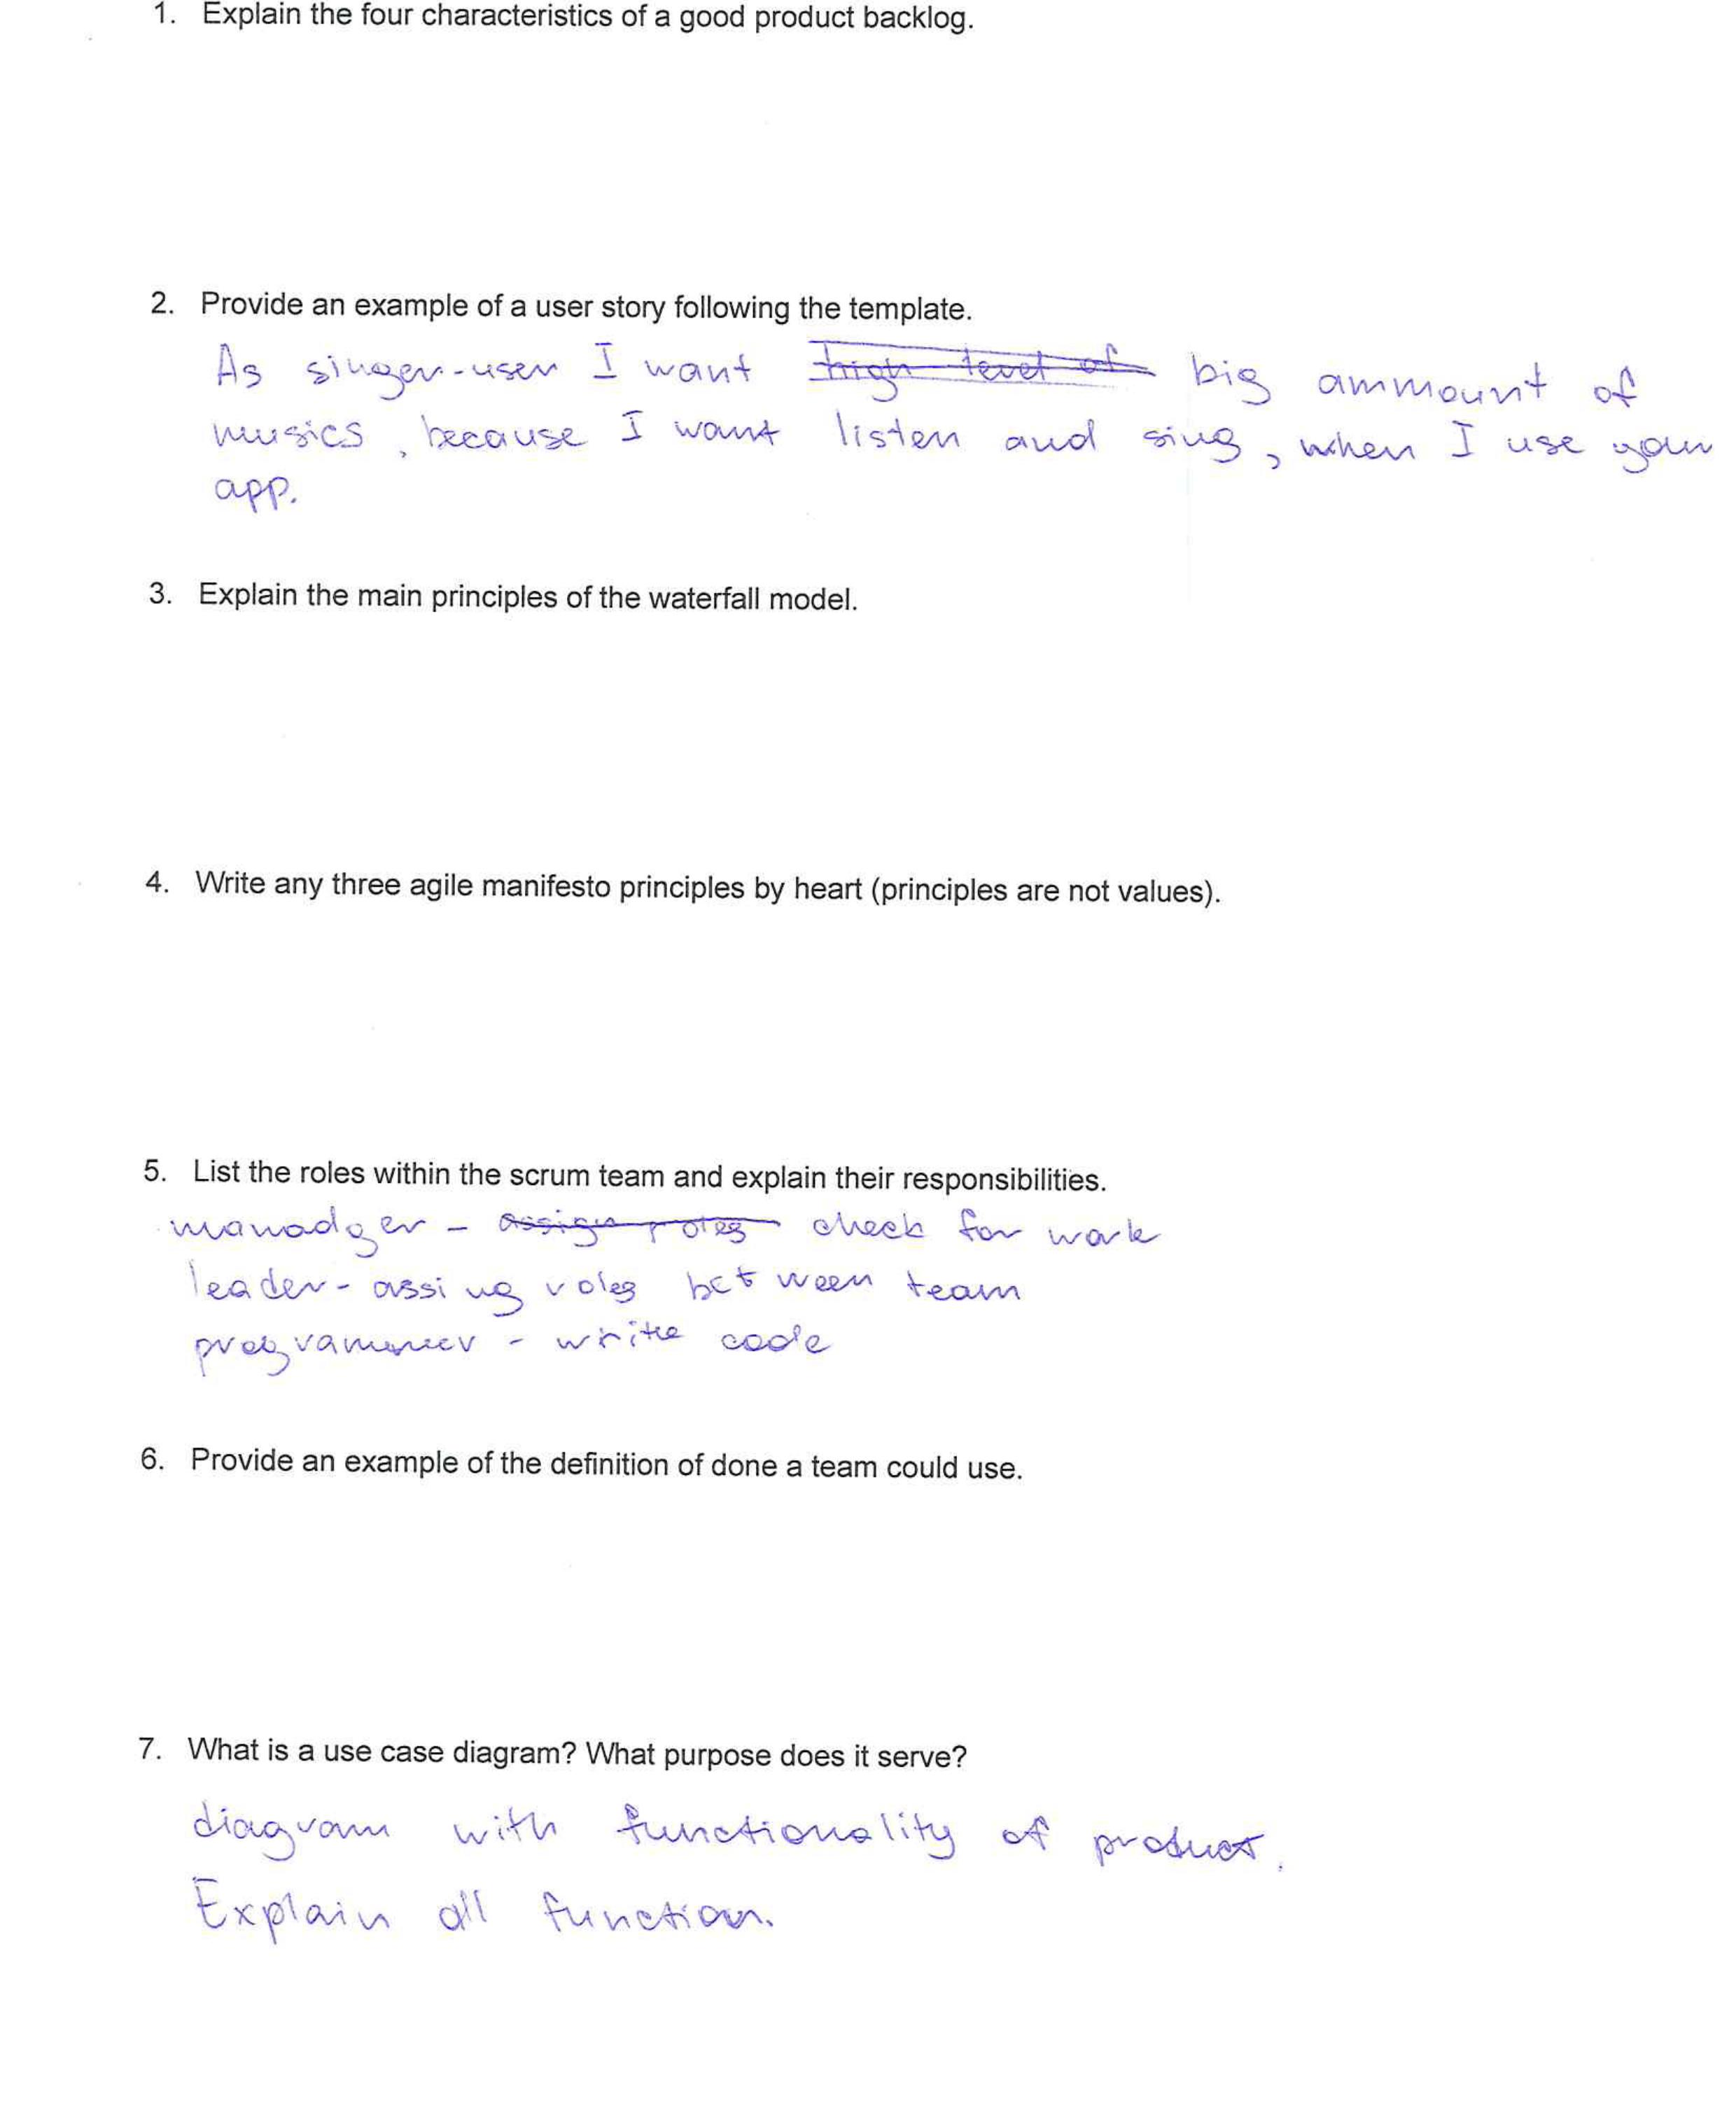 1. Explain the four characteristics of a good product backlog.
2. Provide an example of a user story following the template.
As singer-user I want high level of big ammount of
musics, because I want listen and sing, when I use your
app.
3. Explain the main principles of the waterfall model.
4. Write any three agile manifesto principles by heart (principles are not values).
5. List the roles within the scrum team and explain their responsibilities.
manadger - assign roles check for work
leader - assing roles between team
programmer - write code
6. Provide an example of the definition of done a team could use.
7. What is a use case diagram? What purpose does it serve?
diagram with functionality of product.
Explain all function.